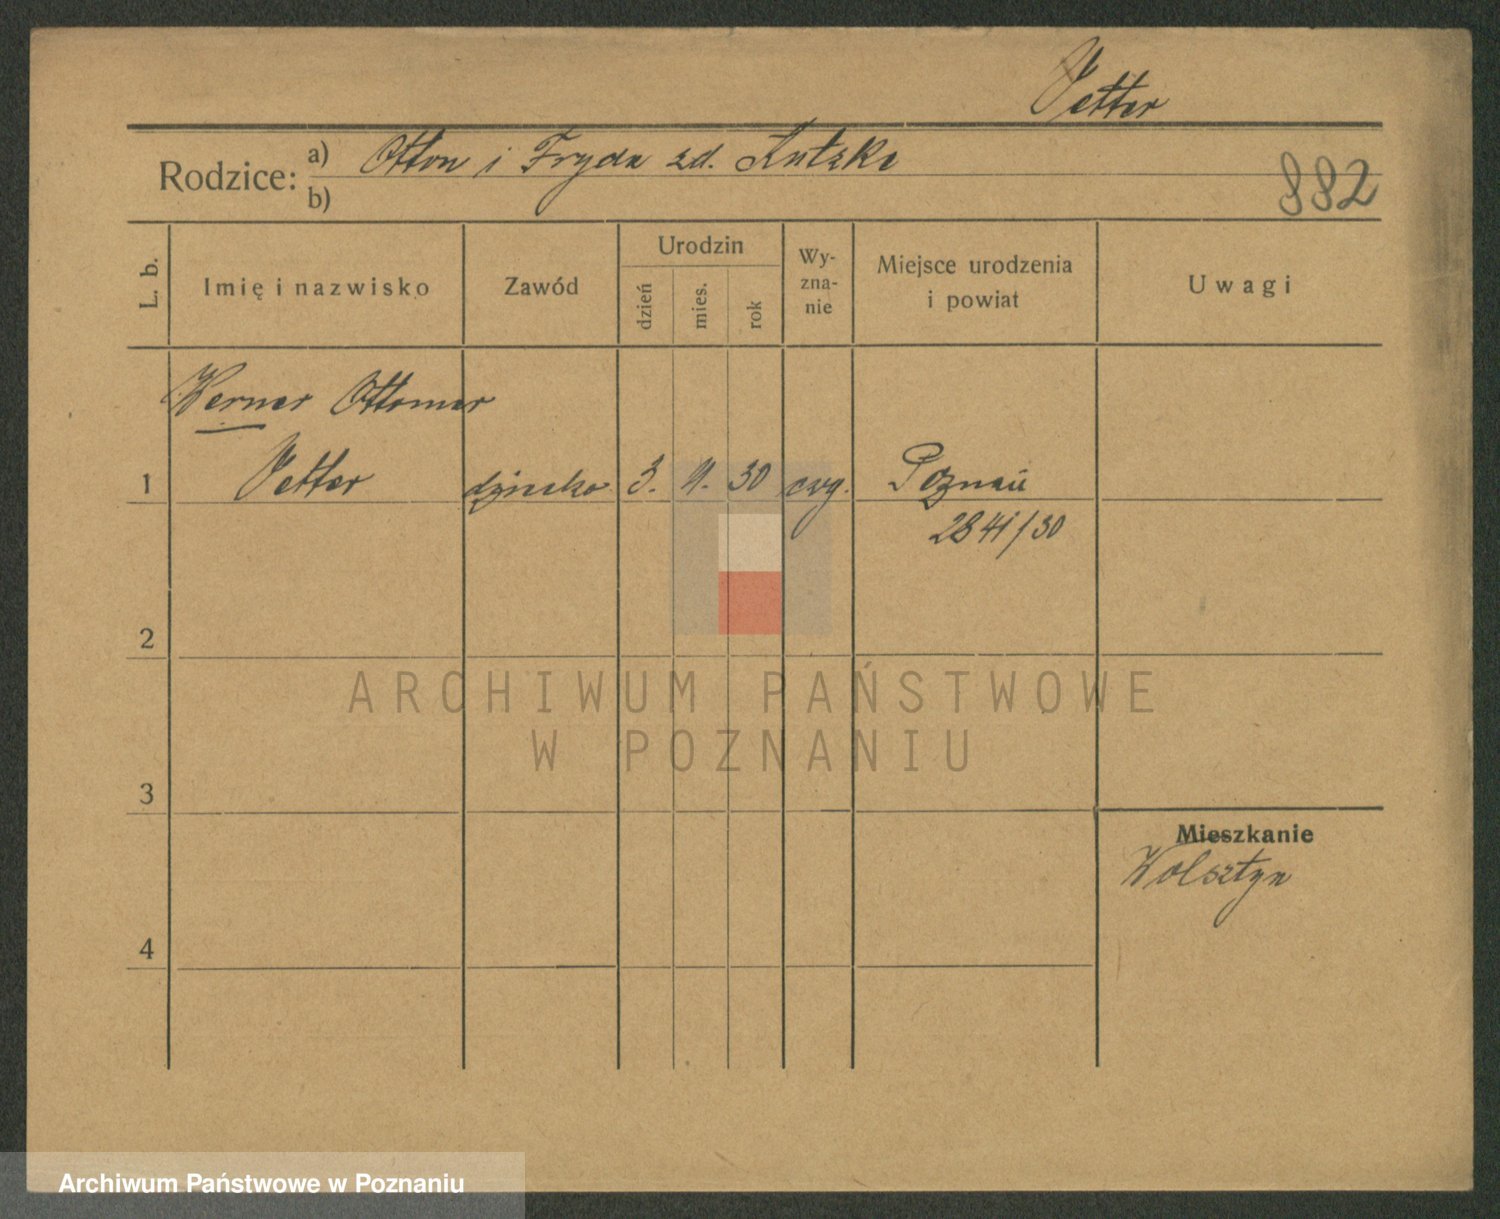 Vetter
Rodzice: a) Otton i Fryda zd.
b)
882
L. b.
Imię i nazwisko
Zawód
Urodzin
dzień
mies.
rok
Wy-
zna-
nie
Miejsce urodzenia
i powiat
Uwagi
Werner Ottomar
1 Vetter dziecko 3. 9. 30 ewg. Poznań
2841/30
2
3
4
Mieszkanie
Wolsztyn
ARCHIWUM PAŃSTWOWE
W POZNANIU
Archiwum Państwowe w Poznaniu